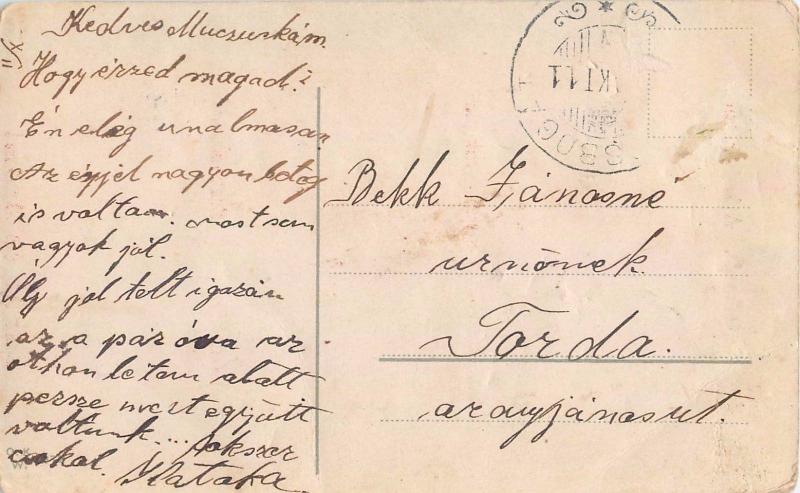 Kedves Muczurkám.
Hogy érzed magad?
Én elég unalmasan
Az éjjel nagyon beteg
is voltam. most sem
vagyok jól.
Oly jol telt igazán
az a pár óra az
othon letem alatt
persze mert együtt
voltunk.... sokszor
csokol. Katoka
Bekk Jánosné
urnőnek
Torda.
arany jános ut.